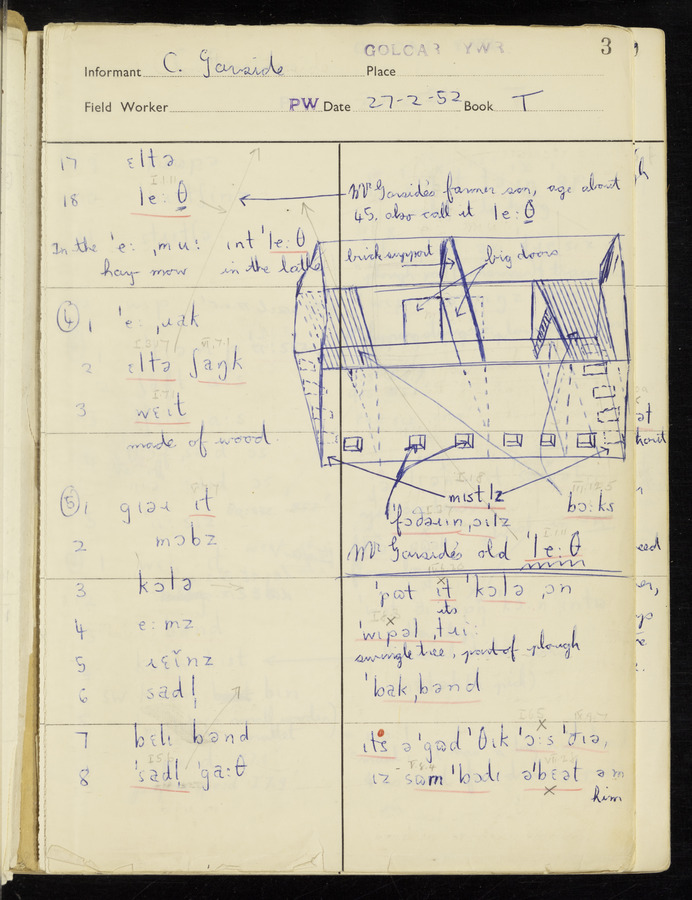 GOLCAR YWR
3
Informant C. Garside Place
Field Worker PW Date 27-2-52 Book T
17 ɛltə
18 le:θ
Mr Garside's farmer son, age about
45, also call it le:θ
In the 'e: ˌmu: int 'le:θ
hay-mow in the lathe
brick support
big doors
④ 1 'e: ˌɹak
2 ɛltə ʃaŋk
3 wɛit
made of wood
mistl̩z
'fɔðəɹinˌɔilz
bɔ:ks
Mr Garside's old 'le:θ
⑤ 1 giəɹ it
2 mɔbz
3 kɔlə
'pʊt it 'kɔlə ˌɔn
its
4 e:mz
'wipəl ˌtɹi:
swingle tree, part of plough
5 ɹɛĩnz
6 sadl̩
'bakˌbənd
7 bɛli bənd
its ə 'gʊd 'θik 'ɔ:s 'ðiə,
8 'sadl̩ 'ga:θ
iz sʊm 'bɔdi ə'bɛət əm
him